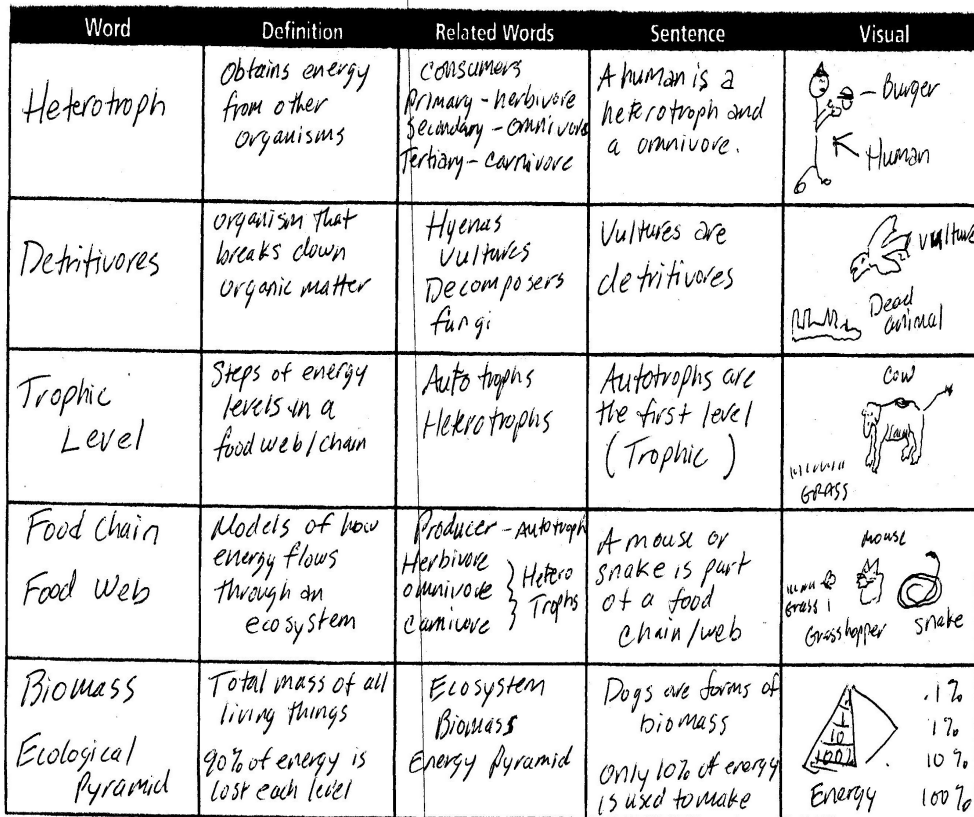 Word Definition Related Words Sentence Visual
Heterotroph
Obtains energy
from other
organisms
Consumers
Primary - herbivore
Secondary - omnivore
Tertiary - carnivore
A human is a
heterotroph and
a omnivore.
- Burger
Human
Detritivores
organism that
breaks down
organic matter
Hyenas
Vultures
Decomposers
fungi
Vultures are
detritivores
vulture
Dead
animal
Trophic
Level
Steps of energy
levels in a
food web/chain
Autotrophs
Heterotrophs
Autotrophs are
the first level
(Trophic)
Cow
GRASS
Food Chain
Food Web
Models of how
energy flows
through an
ecosystem
Producer - Autotroph
Herbivore
omnivore
Carnivore
Hetero
Trophs
A mouse or
snake is part
of a food
chain/web
mouse
Grass
Grasshopper
snake
Biomass
Ecological
Pyramid
Total mass of all
living things
90% of energy is
lost each level
Ecosystem
Biomass
Energy Pyramid
Dogs are forms of
biomass
Only 10% of energy
is used to make
.1
1
10
100%
.1%
1%
10%
100%
Energy